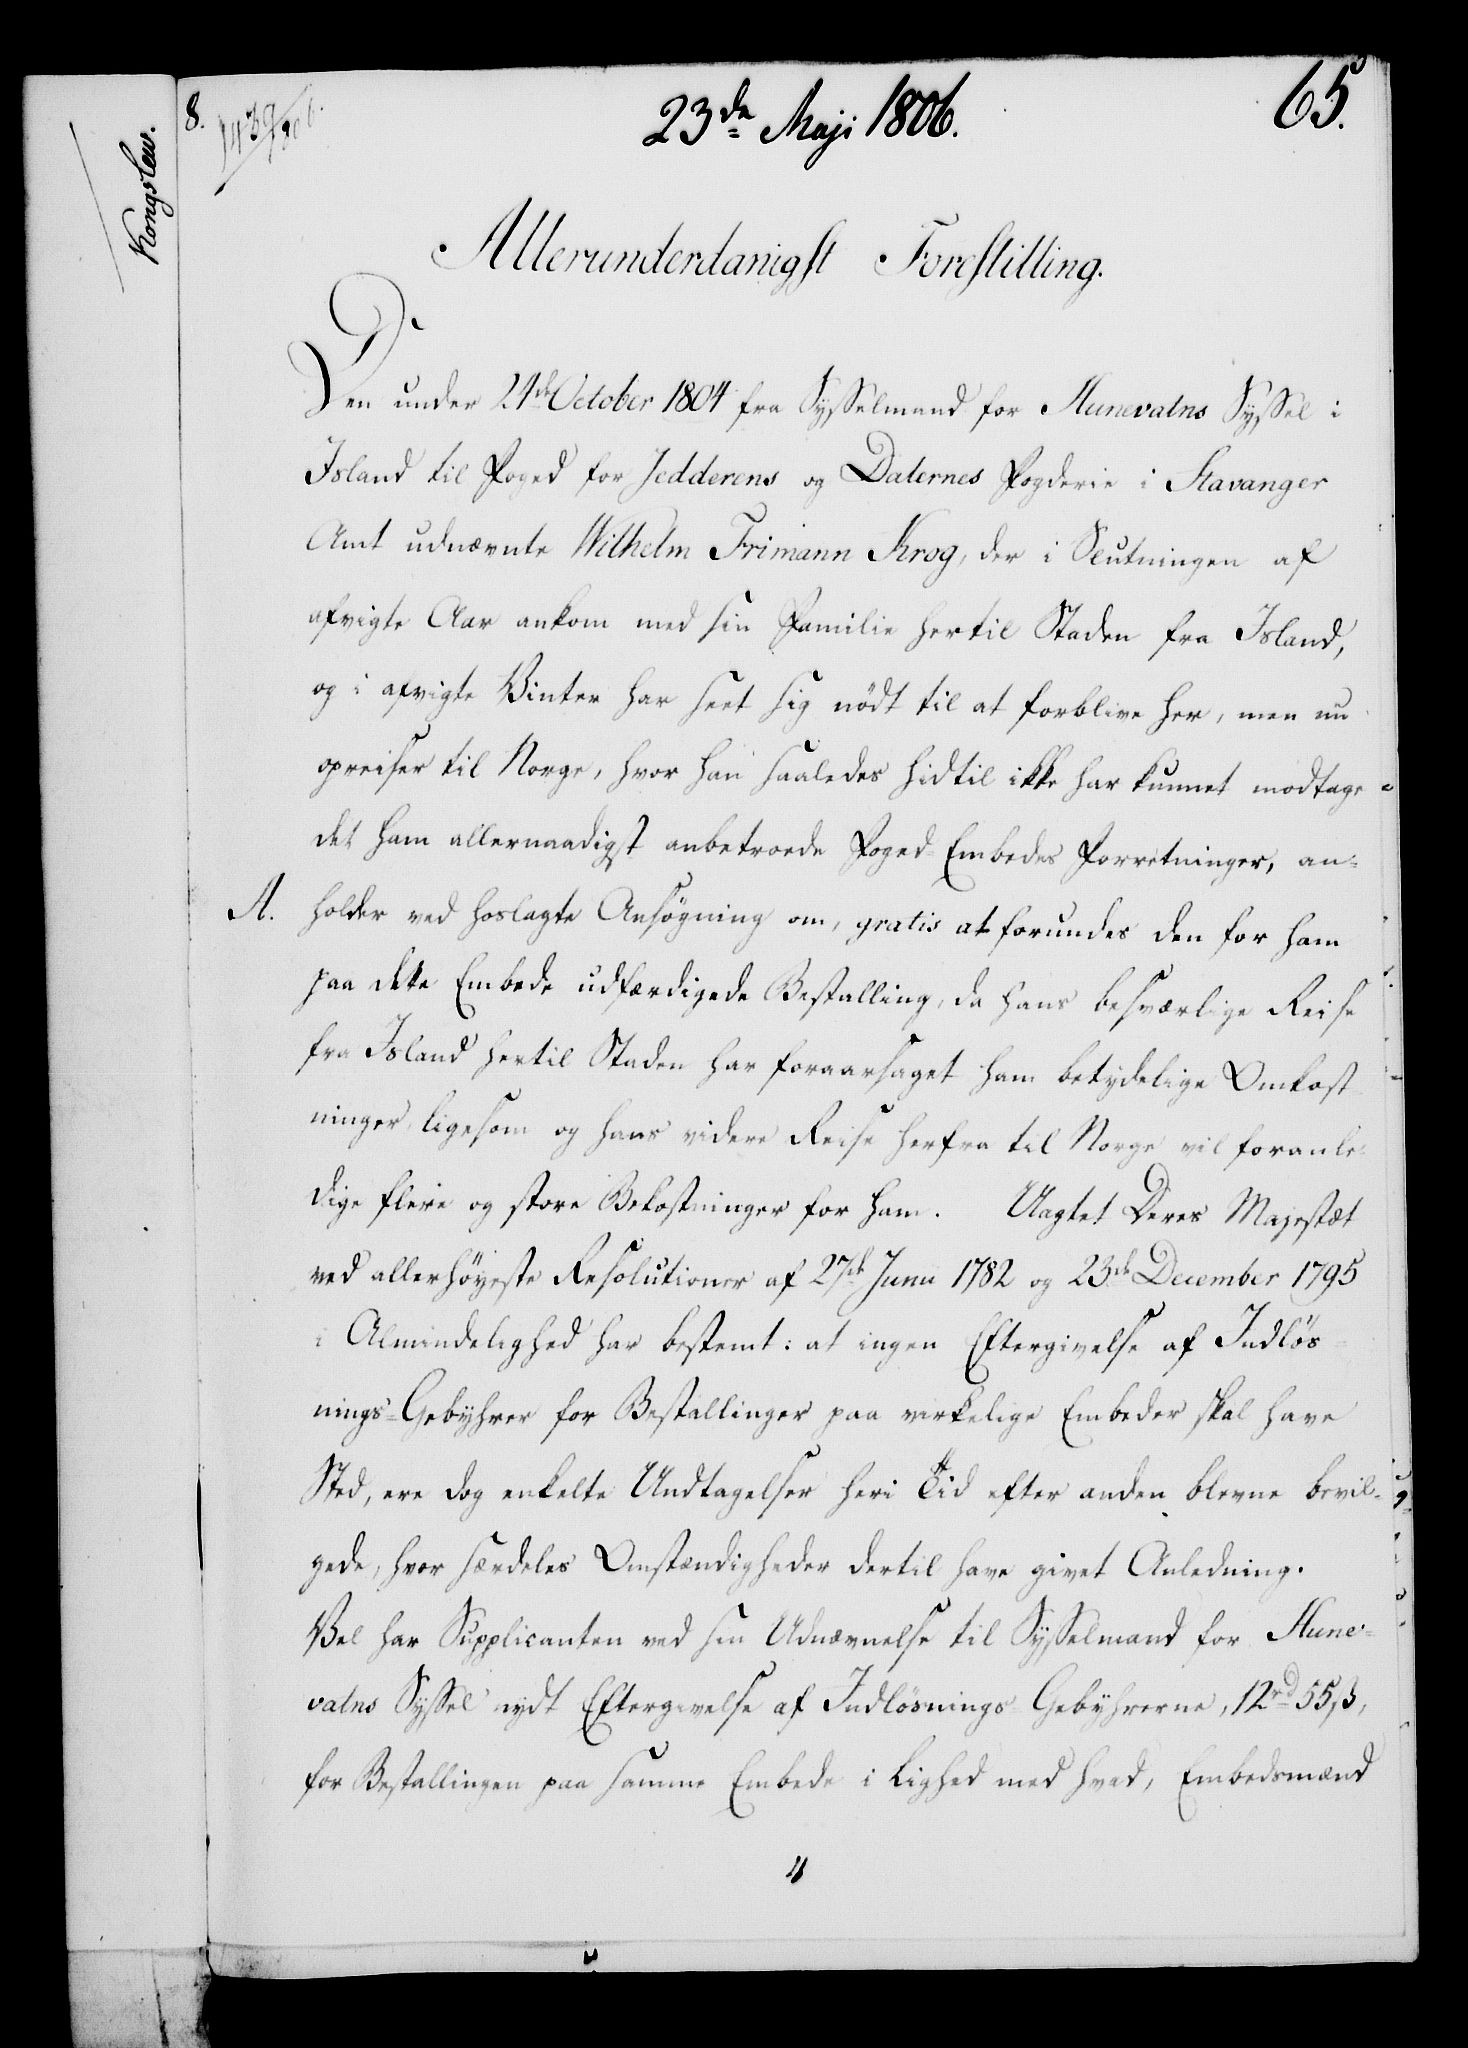 8.
1439/806.
23de Maji 1806.
65.
Kongslew.
Allerunderdanigst Forestilling.
Den under 24de October 1804 fra Sysselmand for Hunevatns Syssel i
Island til Foged for Jedderens og Dalernes Fogderie i Stavanger
Amt udnævnte Wilhelm Frimann Krog, der i Slutningen af
afvigte Aar ankom med sin Familie hertil Staden fra Island,
og i afvigte Vinter har seet sig nödt til at forblive her, men nu
opreiser til Norge, hvor han saaledes hidtil ikke har kunnet modtage
det ham allernaadigst anbetroede Foged-Embedes Forretninger, an-
A. holder ved hoslagte Ansögning om, gratis at forundes den for ham
paa dette Embede udfærdigede Bestalling, da hans besværlige Reise
fra Island hertil Staden har foraarsaget ham betydelige Omkost
ninger, ligesom og hans videre Reise herfra til Norge vil foranle-
dige flere og store Bekostninger for ham. Uagtet Deres Majestæt
ved allerhöyeste Resolutioner af 27de Junii 1782 og 23de December 1795
i Almindelighed har bestemt: at ingen Eftergivelse af Indlös-
nings-Gebyhrer for Bestallinger paa virkelige Embeder skal have
Sted, ere dog enkelte Undtagelser heri Tid efter anden blevne bevil-
gede, hvor særdeles Omstændigheder dertil have givet Anledning.
Vel har Supplicanten ved sin Udnævnelse til Sysselmand for Hune-
vatns Syssel nydt Eftergivelse af Indlösnings-Gebyhrerne, 12rd 55ß,
for Bestallingen paa samme Embede i Lighed med hvad, Embedsmænd